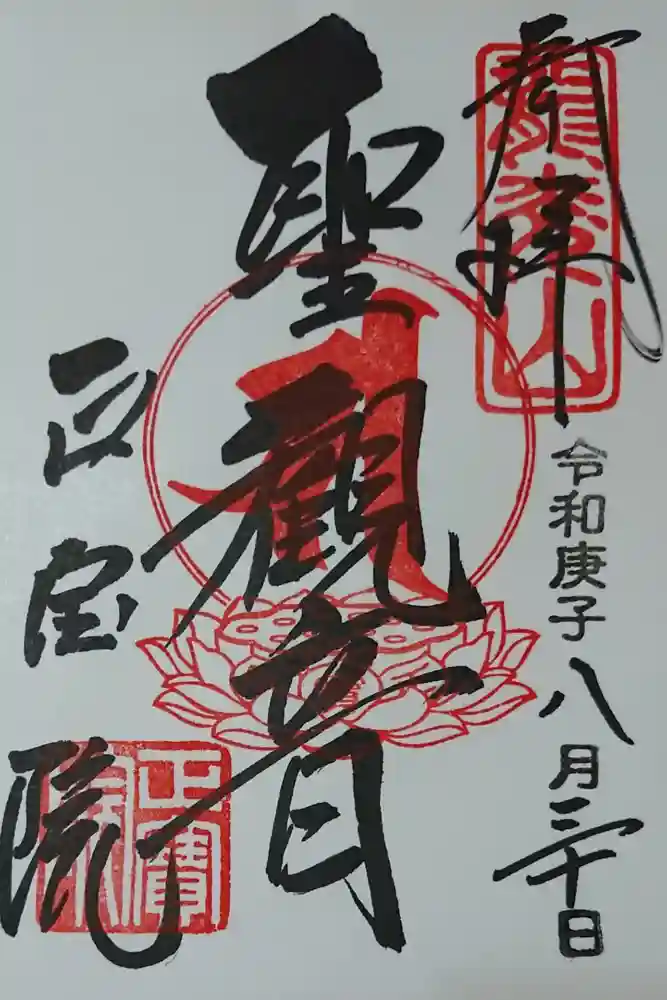 奉拝
龍寳山
令和庚子八月三十日
聖觀音
正宝院
正寶院